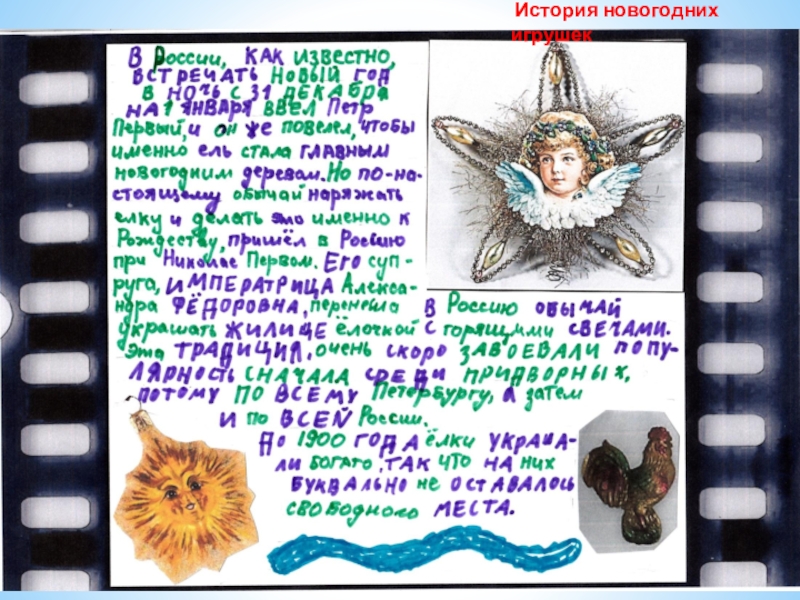 История новогодних
игрушек
В России, КАК ИЗВЕСТНО,
ВСТРЕЧАТЬ НОВЫЙ ГОД
В НОЧЬ С 31 ДЕКАБРЯ
НА 1 ЯНВАРЯ ВВЕЛ Петр
Первый, и он же повелел, чтобы
именно ель стала ГЛАВНЫМ
новогодним деревом. Но по-на-
стоящему обычай наряжать
елку и делать это именно к
Рождеству, пришёл в Россию
при Николае Первом. Его суп-
руга, ИМПЕРАТРИЦА Алекса-
ндра ФЁДОРОВНА, перенесла в Россию ОБЫЧАЙ
украшать ЖИЛИЩЕ ёлочкой с горящими СВЕЧАМИ.
Эта ТРАДИЦИЯ, очень скоро ЗАВОЕВАЛИ ПОПУ-
ЛЯРНОСТЬ СНАЧАЛА СРЕДИ ПРИДВОРНЫХ,
потому по ВСЕМУ Петербургу, а затем
И по ВСЕЙ России.
До 1900 ГОДА ёлки УКРАША-
ЛИ БОГАТО, ТАК что НА них
БУКВАЛЬНО не ОСТАВАЛОСЬ
СВОБОДНОГО МЕСТА.